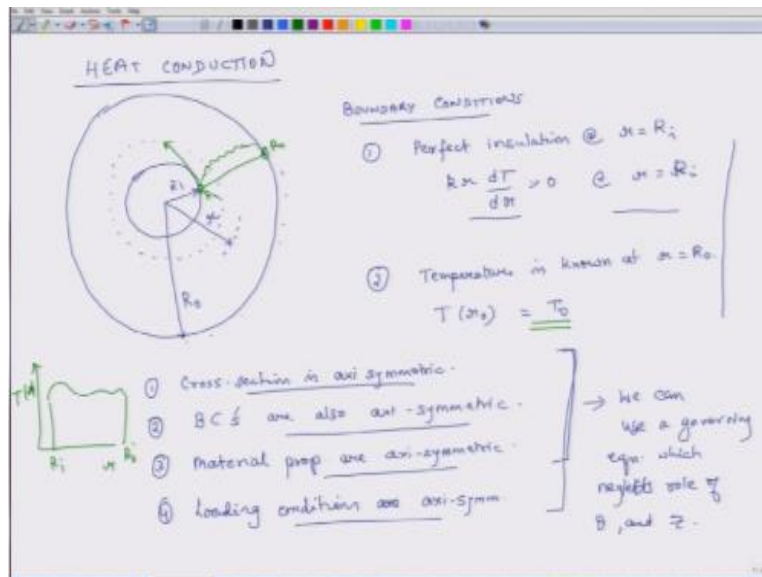 HEAT CONDUCTION
R0
Ri
r
R0
BOUNDARY CONDITIONS
① Perfect insulation @ r = Ri
kr dT/dr = 0 @ r = Ri
② Temperature is known at r = R0.
T(r0) = T0
T(r)
Ri r R0
① Cross-section is axi symmetric.
② BC's are also axi-symmetric.
③ Material prop are axi-symmetric.
④ Loading condition are axi-symm
→ We can
use a governing
eqn. which
neglects role of
θ, and z.